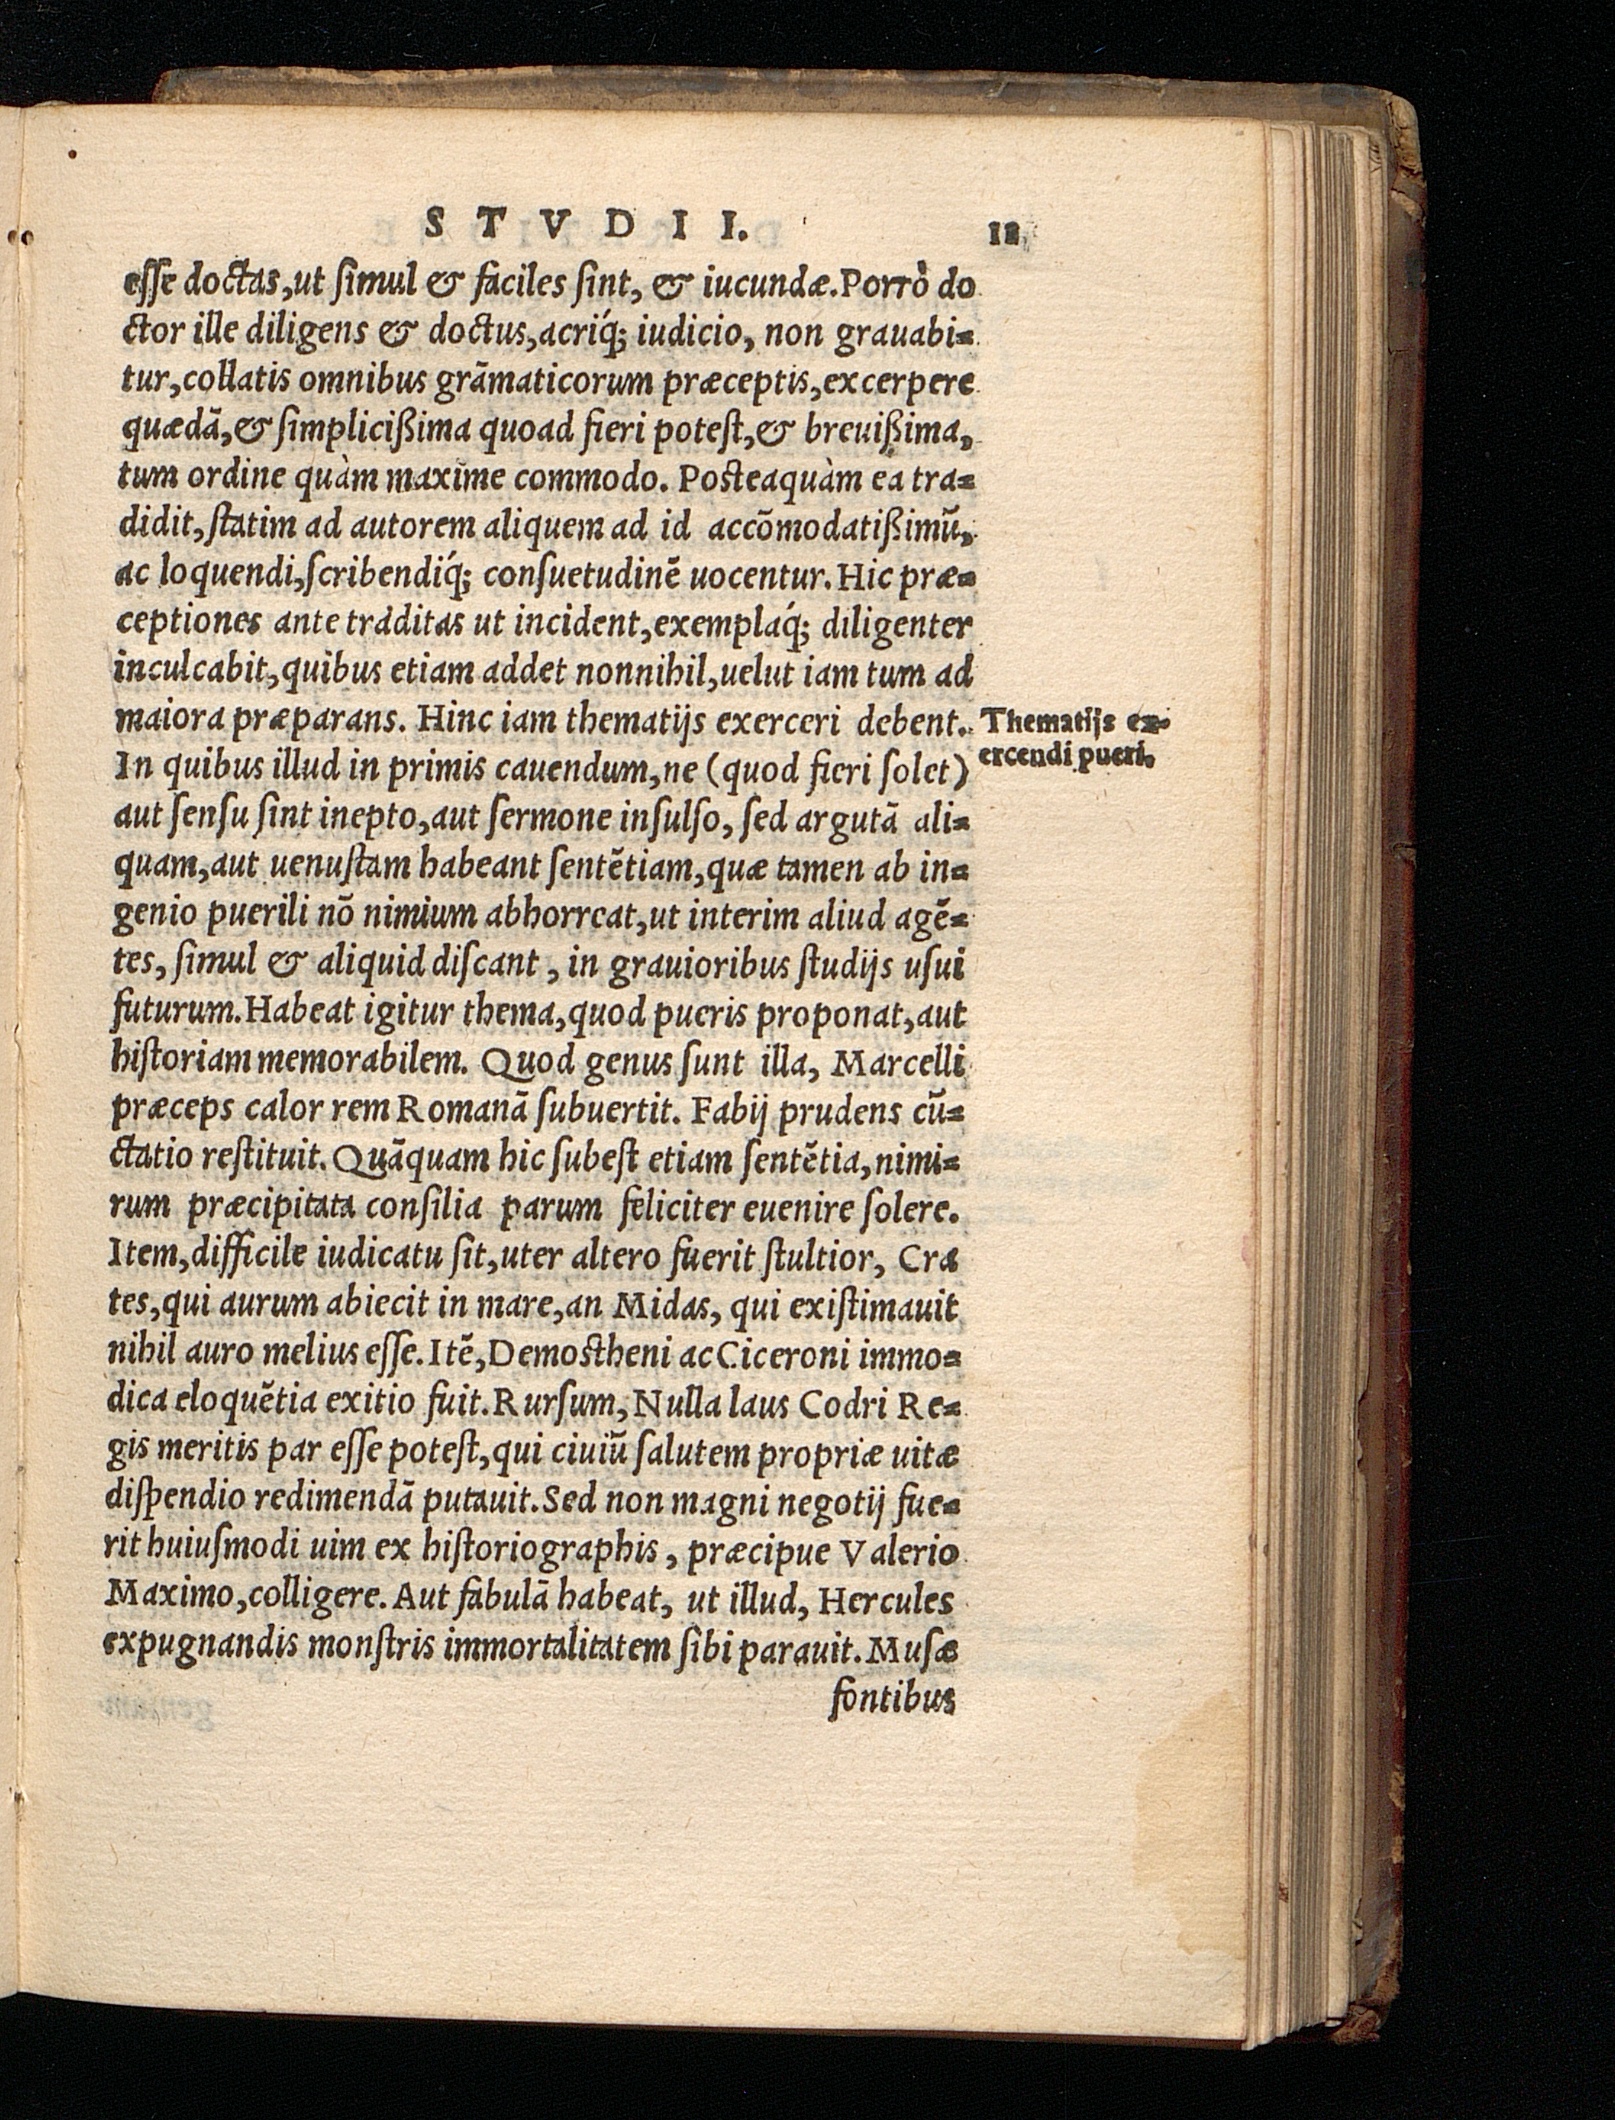 STVDII. 11
eſſe doctas, ut ſimul & faciles ſint, & iucundæ. Porrò do
ctor ille diligens & doctus, acriq́; iudicio, non grauabi=
tur, collatis omnibus grãmaticorum præceptis, excerpere
quædã, & ſimplicißima quoad fieri poteſt, & breuißima,
tum ordine quàm maxime commodo. Posteaquàm ea tra=
didit, ſtatim ad autorem aliquem ad id accõmodatißimũ,
ac loquendi, ſcribendiq́; conſuetudinẽ uocentur. Hic præ=
ceptiones ante traditas ut incident, exemplaq́; diligenter
inculcabit, quibus etiam addet nonnihil, uelut iam tum ad
maiora præparans. Hinc iam thematijs exerceri debent.
Thematijs ex-
ercendi pueri.
In quibus illud in primis cauendum, ne (quod fieri ſolet)
aut ſenſu ſint inepto, aut ſermone inſulſo, ſed argutã ali=
quam, aut uenuſtam habeant ſentẽtiam, quæ tamen ab in=
genio puerili nõ nimium abhorreat, ut interim aliud agẽ=
tes, ſimul & aliquid diſcant, in grauioribus ſtudijs uſui
futurum. Habeat igitur thema, quod pueris proponat, aut
hiſtoriam memorabilem. Quod genus ſunt illa, Marcelli
præceps calor rem Romanã ſubuertit. Fabij prudens cũ=
ctatio reſtituit. Quãquam hic ſubeſt etiam ſentẽtia, nimi=
rum præcipitata conſilia parum feliciter euenire ſolere.
Item, difficile iudicatu ſit, uter altero fuerit ſtultior, Cra
tes, qui aurum abiecit in mare, an Midas, qui exiſtimauit
nihil auro melius eſſe. Itẽ, Demostheni ac Ciceroni immo=
dica eloquẽtia exitio fuit. Rurſum, Nulla laus Codri Re=
gis meritis par eſſe poteſt, qui ciuiũ ſalutem propriæ uitæ
diſpendio redimendã putauit. Sed non magni negotij fue=
rit huiuſmodi uim ex hiſtoriographis, præcipue Valerio
Maximo, colligere. Aut fabulã habeat, ut illud, Hercules
expugnandis monſtris immortalitatem ſibi parauit. Muſæ
fontibus